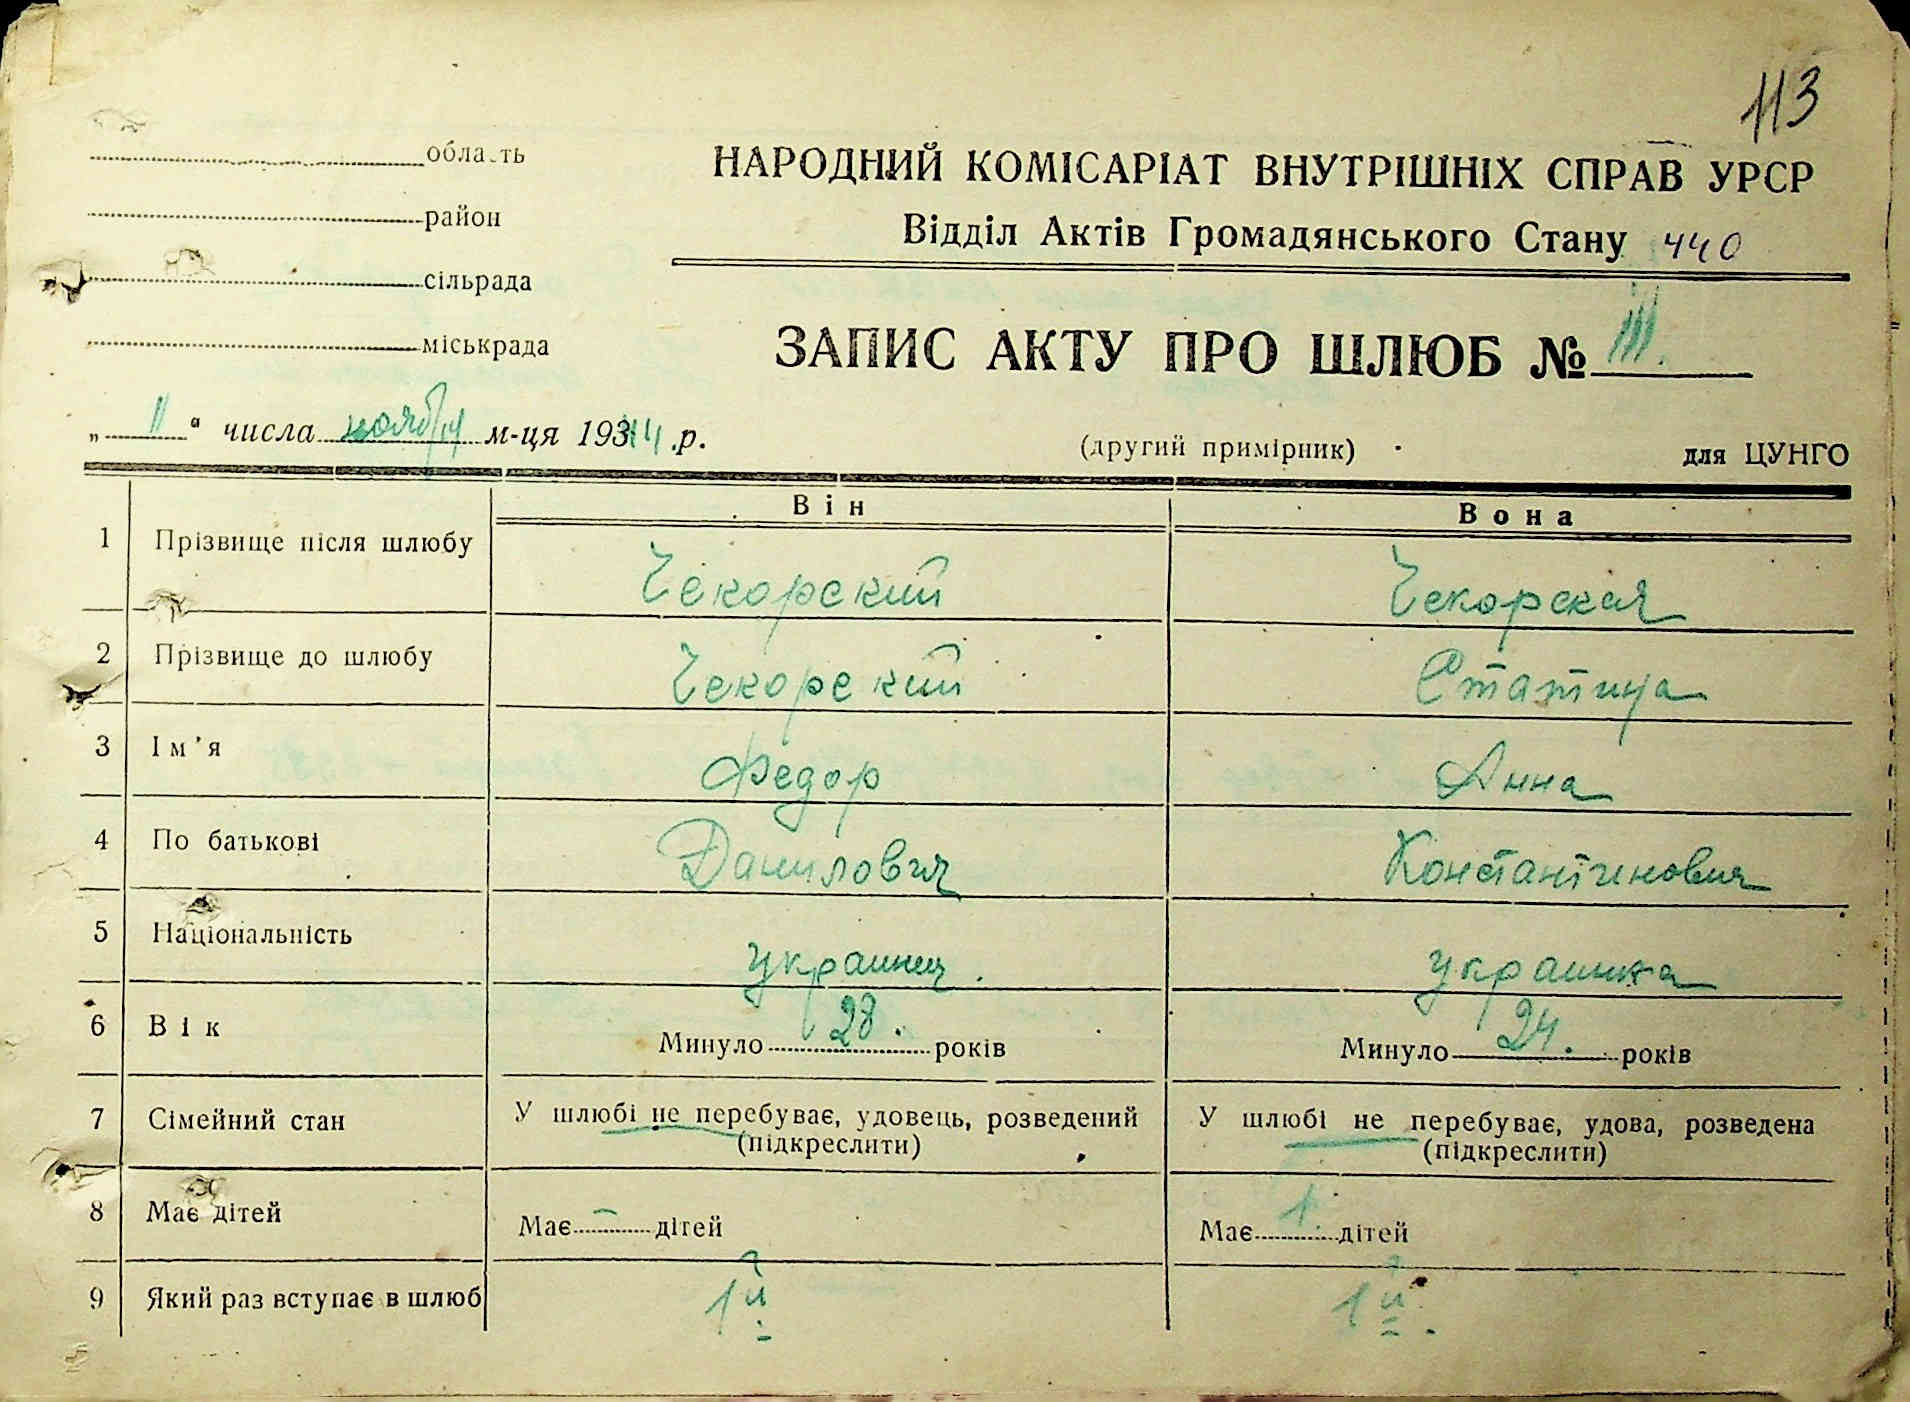 113
область
район
сільрада
міськрада
НАРОДНИЙ КОМІСАРІАТ ВНУТРІШНІХ СПРАВ УРСР
Відділ Актів Громадянського Стану 440
ЗАПИС АКТУ ПРО ШЛЮБ № 111.
„ 11 “ числа ноября м-ця 1944 р.
(другий примірник)
для ЦУНГО
Він Вона
1 Прізвище після шлюбу Чекорский Чекорская
2 Прізвище до шлюбу Чекорский
3 Ім’я Федор Анна
4 По батькові Данилович Константиновна
5 Національність украинец. украинка
6 Вік Минуло 28. років Минуло 24. років
7 Сімейний стан У шлюбі не перебуває, удовець, розведений У шлюбі не перебуває, удова, розведена
(підкреслити) (підкреслити)
8 Має дітей Має – дітей Має 1 дітей
9 Який раз вступає в шлюб 1й 1й.